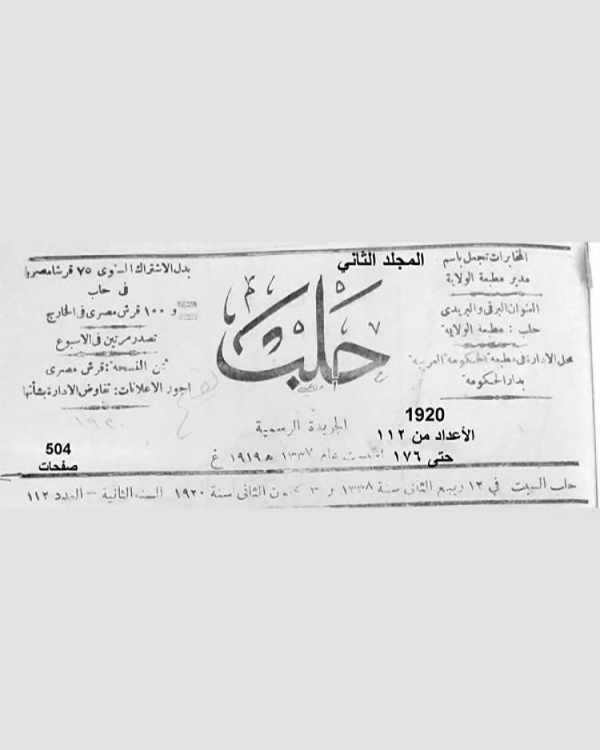 المجلد الثاني
المخابرات تجعل باسم
مدير مطبعة الولاية
العنوان البرقي والبريدي
حلب : مطبعة الولاية
محل الادارة في مطبعة الحكومة العربية
بدار الحكومة
حلب
الجريدة الرسمية
تأسست عام ١٣٣٧ ه ١٩١٩ غ
بدل الاشتراك السنوى ٧٥ قرشا مصريا
فى حلب
و ١٠٠ قرش مصرى فى الخارج
تصدر مرتين فى الاسبوع
ثمن النسخة: قرش مصرى
اجور الاعلانات: تفاوض الادارة بشأنها
١٩٢٠
1920
الأعداد من ١١٢
حتى ١٧٦
504
صفحات
حلب السبت في ١٢ ربيع الثانى سنة ١٣٣٨ و ٣ كانون الثانى سنة ١٩٢٠ السنة الثانية – العدد ١١٢